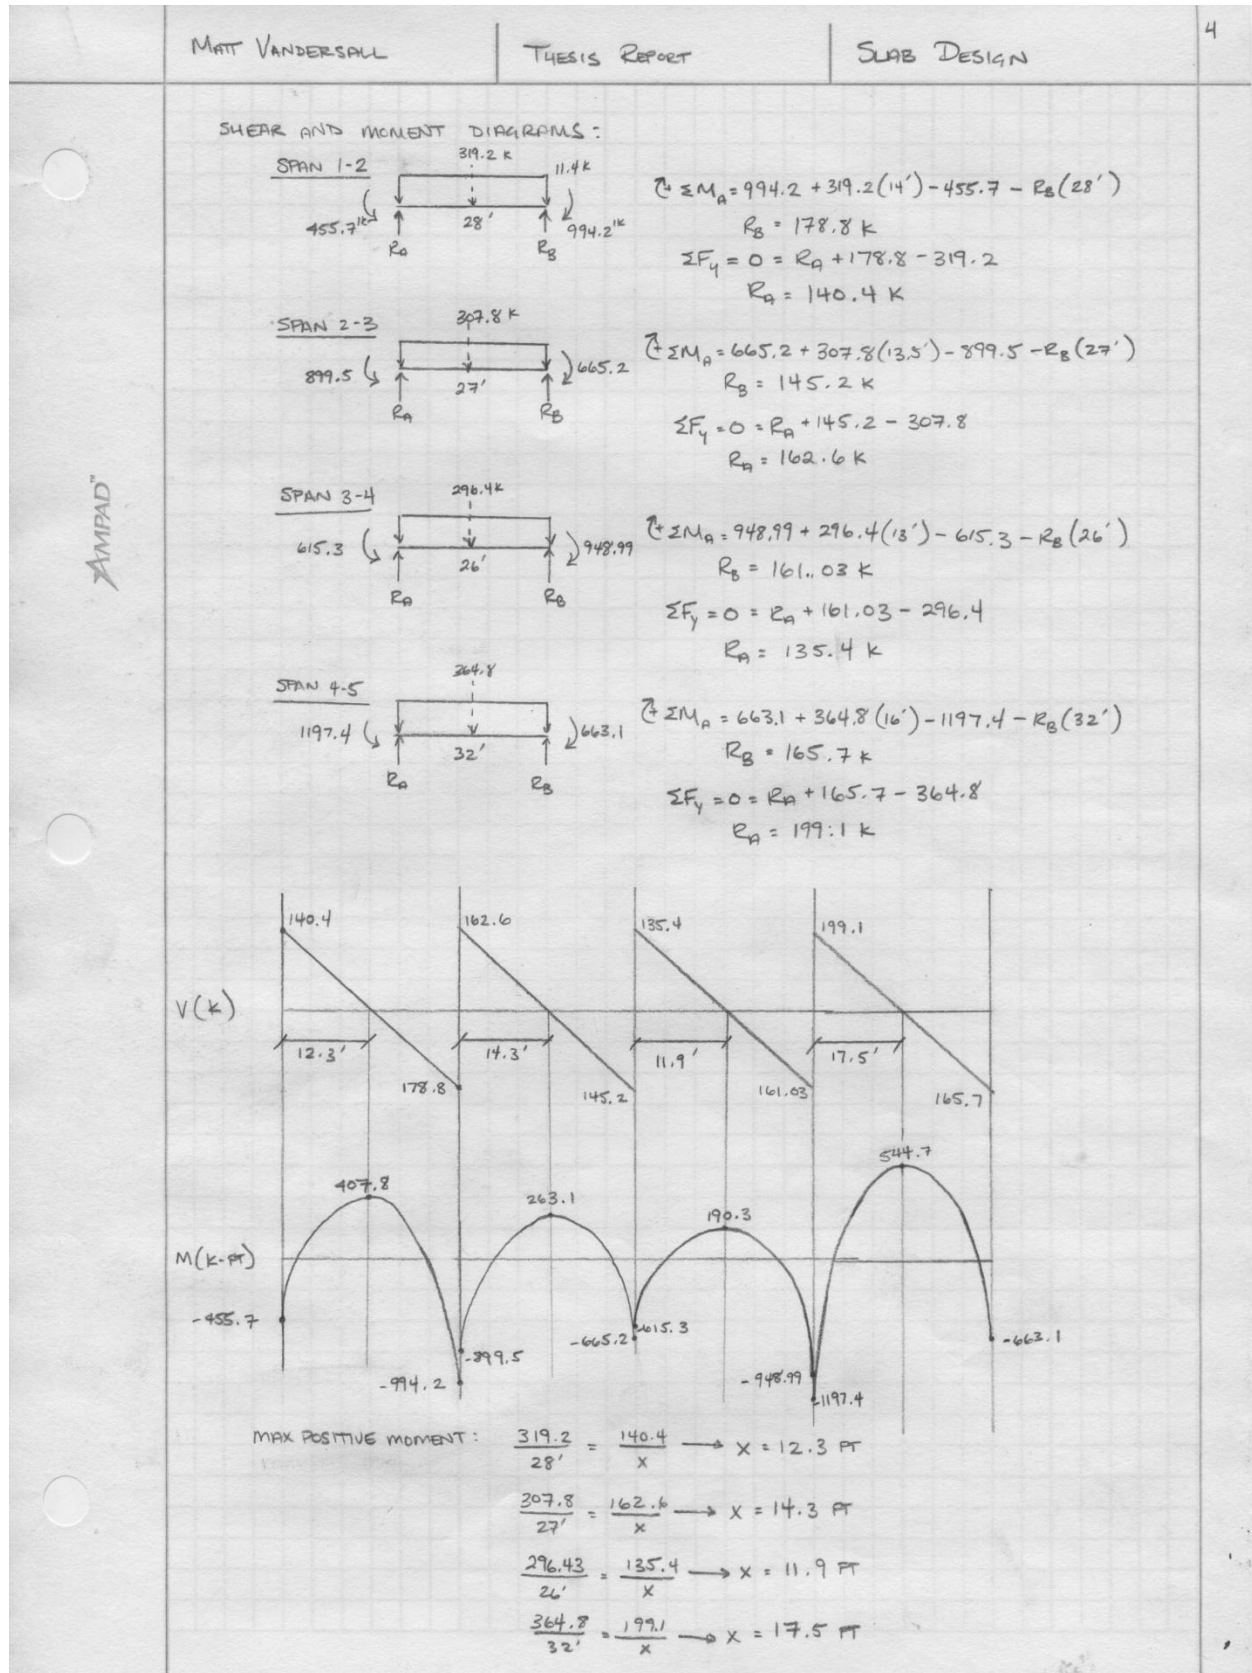 MATT VANDERSALL THESIS REPORT SLAB DESIGN 4
SHEAR AND MOMENT DIAGRAMS:
SPAN 1-2
319.2 K
11.4 K
455.7'K
28'
994.2'K
RA
RB
↻+ ΣMA = 994.2 + 319.2(14') - 455.7 - RB(28')
RB = 178.8 K
ΣFy = 0 = RA + 178.8 - 319.2
RA = 140.4 K
SPAN 2-3
307.8 K
899.5
27'
665.2
RA
RB
↻+ ΣMA = 665.2 + 307.8(13.5') - 899.5 - RB(27')
RB = 145.2 K
ΣFy = 0 = RA + 145.2 - 307.8
RA = 162.6 K
AMPAD™
SPAN 3-4
296.4K
615.3
26'
948.99
RA
RB
↻+ ΣMA = 948.99 + 296.4(13') - 615.3 - RB(26')
RB = 161.03 K
ΣFy = 0 = RA + 161.03 - 296.4
RA = 135.4 K
SPAN 4-5
364.8
1197.4
32'
663.1
RA
RB
↻+ ΣMA = 663.1 + 364.8(16') - 1197.4 - RB(32')
RB = 165.7 K
ΣFy = 0 = RA + 165.7 - 364.8
RA = 199.1 K
140.4 162.6 135.4 199.1
V(K)
12.3' 14.3' 11.9' 17.5'
178.8 145.2 161.03 165.7
407.8 263.1 190.3 544.7
M(K-FT)
-455.7 -665.2 -615.3 -663.1
-899.5
-994.2 -948.99
-1197.4
MAX POSITIVE MOMENT: 319.2/28' = 140.4/X → X = 12.3 FT
307.8/27' = 162.6/X → X = 14.3 FT
296.43/26' = 135.4/X → X = 11.9 FT
364.8/32' = 199.1/X → X = 17.5 FT